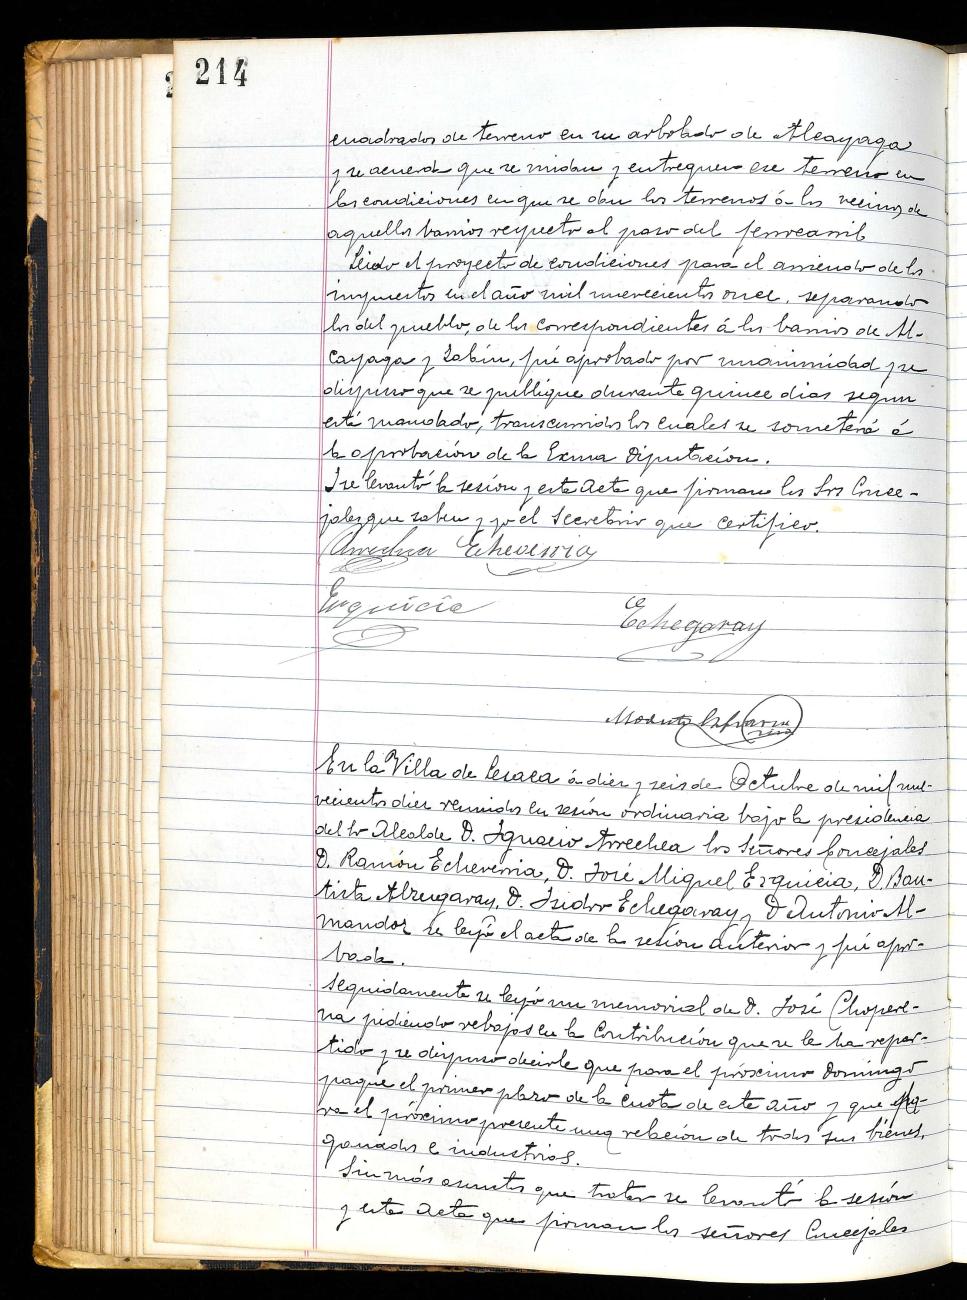 214
cuadrados de terreno en su arbolado de Alcayaga
y se acuerda que se midan y entreguen ese terreno en
las condiciones en que se dan los terrenos á los vecinos de
aquellos barrios respecto al paso del ferrocarril
Leido el proyecto de condiciones para el arriendo de los
impuestos en el año mil nuevecientos once, separando
los del pueblo, de los correspondientes á los barrios de Al-
cayaga y Zalain, fué aprobado por unanimidad y se
dispuso que se publique durante quince dias segun
está mandado, transcurridos los cuales se someterá á
la aprobación de la Exma Diputación.
Y se levantó la sesión y esta acta que firman los Srs Conce-
jales que saben y yo el Secretario que certifico.
Arrechea Echeverria
Erquicia
Echegaray
Modesto
En la Villa de Lesaca á diez y seis de Octubre de mil nue-
vecientos diez reunidos en sesión ordinaria bajo la presidencia
del Sr Alcalde D. Ignacio Arrechea los Señores Concejales
D. Ramón Echeverria, D. José Miguel Erquicia, D. Bau-
tista Alzugaray, D. Isidor Echegaray y D Antonio Al-
mandoz se leyó el acta de la sesión anterior y fué apro-
bada.
Seguidamente se leyó un memorial de D. José Chopere-
na pidiendo rebajas en la Contribución que se le ha repar-
tido y se dispuso decirle que para el próximo Domingo
pague el primer plazo de la cuota de este año y que pa-
ra el próximo presente una relación de todos sus bienes,
ganados e industrias.
Sin más asuntos que tratar se levantó la sesión
y esta acta que firman los señores Concejales